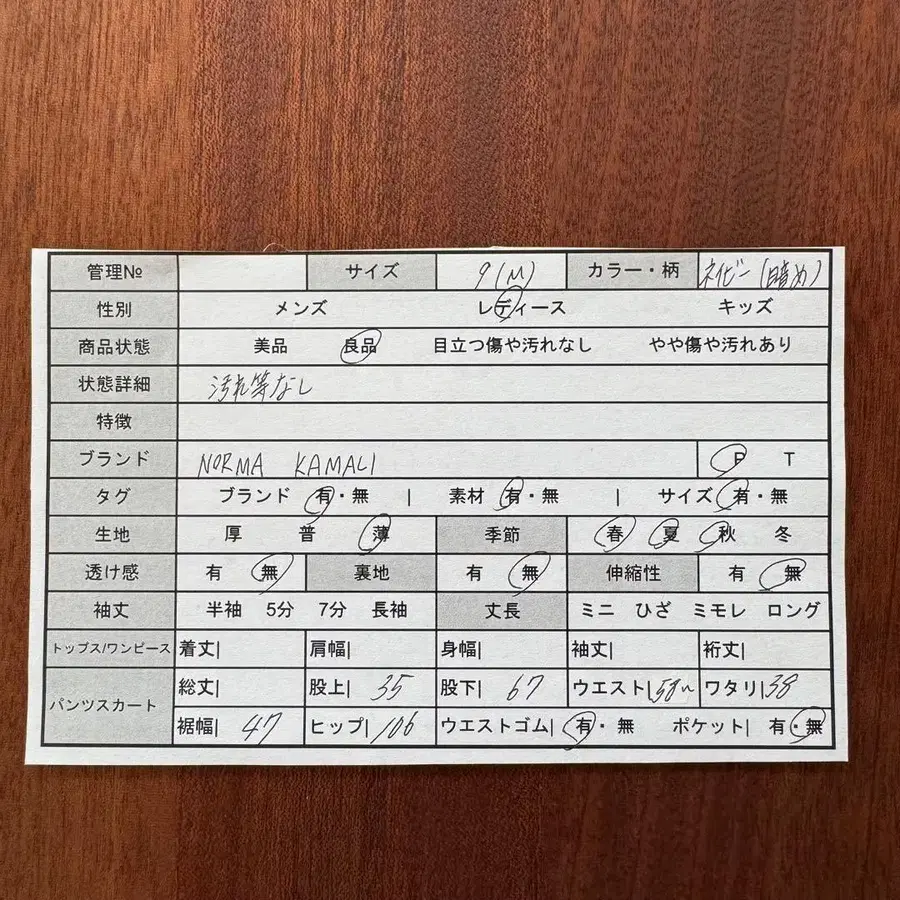 管理№ サイズ 9(M) カラー・柄 ネイビー(暗め)
性別 メンズ レディース キッズ
商品状態 美品 良品 目立つ傷や汚れなし やや傷や汚れあり
状態詳細 汚れ等なし
特徴
ブランド NORMA KAMALI P T
タグ ブランド 有・無 | 素材 有・無 | サイズ 有・無
生地 厚 普 薄 季節 春 夏 秋 冬
透け感 有 無 裏地 有 無 伸縮性 有 無
袖丈 半袖 5分 7分 長袖 丈長 ミニ ひざ ミモレ ロング
トップス/ワンピース 着丈| 肩幅| 身幅| 袖丈| 裄丈|
パンツスカート 総丈| 股上| 35 股下| 67 ウエスト| 58〜 ワタリ| 38
裾幅| 47 ヒップ| 106 ウエストゴム| 有・無 ポケット| 有・無